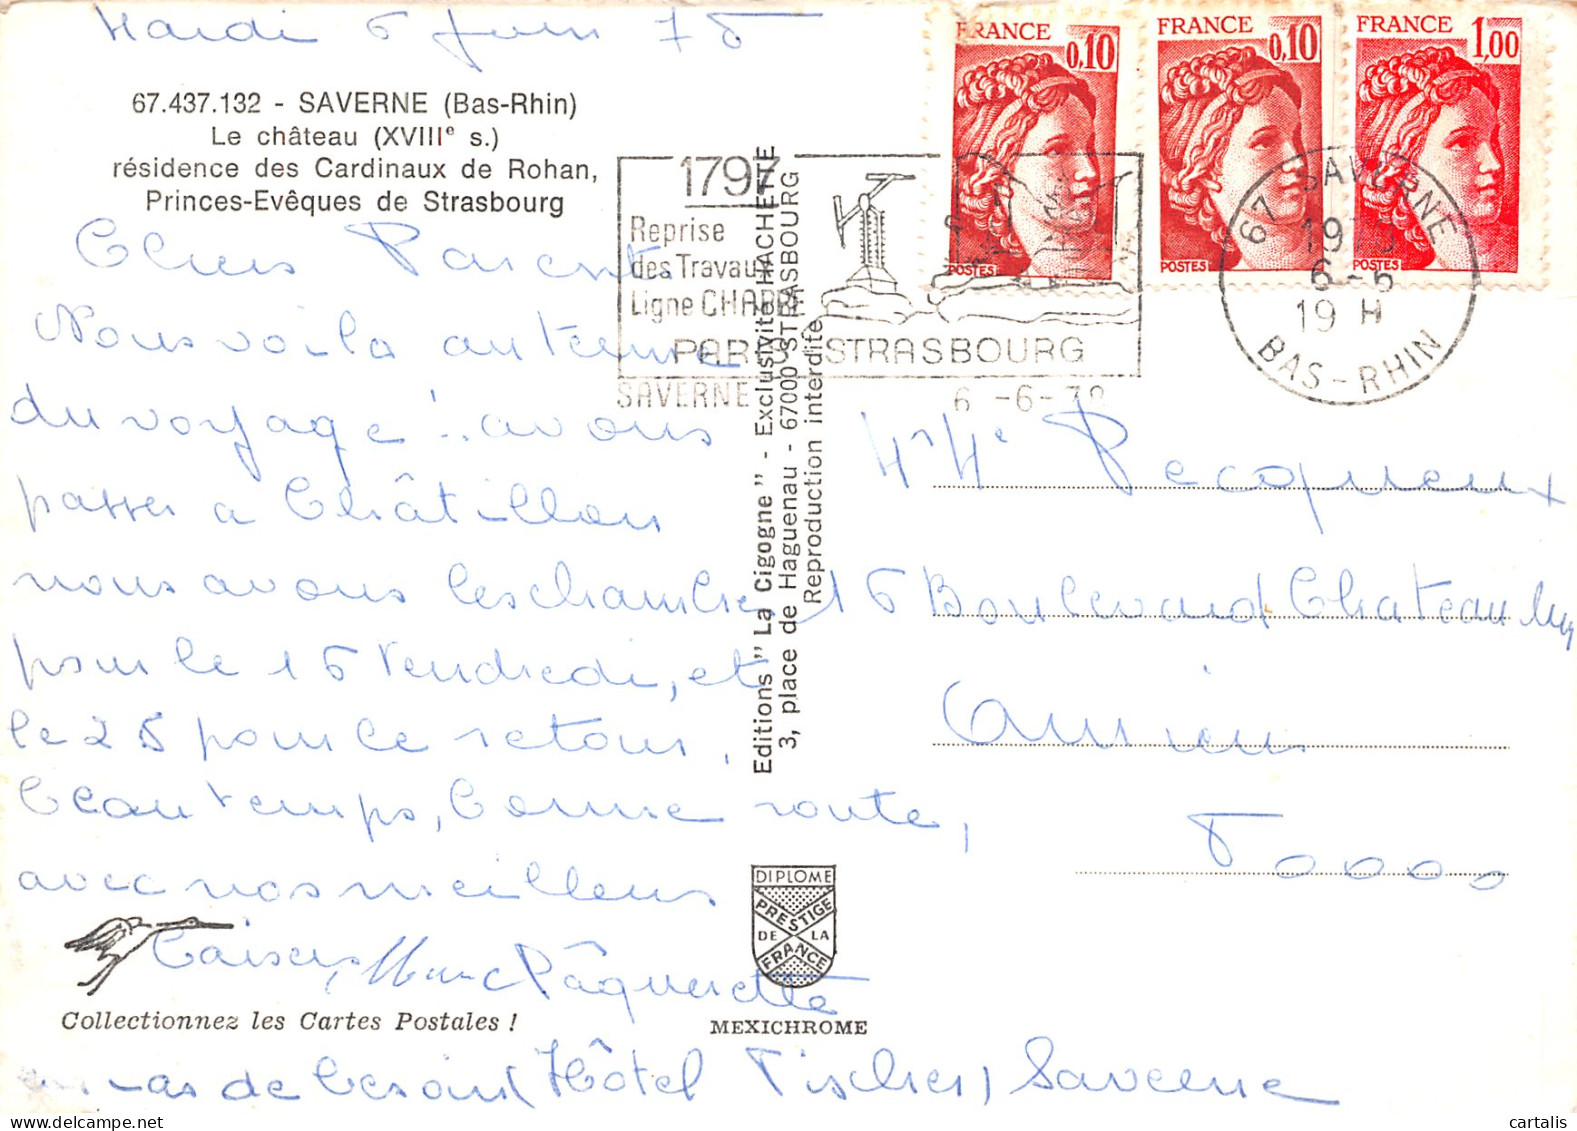 Mardi 6 Juin 78
67.437.132 - SAVERNE (Bas-Rhin)
Le château (XVIIIe s.)
résidence des Cardinaux de Rohan,
Princes-Evêques de Strasbourg
Chers Parents,
Nous voila au terme
du voyage ! avons
passer a Châtillon
nous avons les chambres
pour le 16 Vendredi, et
le 25 pour le retour,
beau temps, bonne route,
avec nos meilleurs
baisers,
Pâquerette
cas de besoin (Hôtel Fischer) Saverne
Collectionnez les Cartes Postales !
Editions "La Cigogne" - Exclusivité HACHETTE
3, place de Haguenau - 67000 STRASBOURG
Reproduction interdite
DIPLOME
PRESTIGE
DE LA
FRANCE
MEXICHROME
FRANCE 0,10
POSTES
FRANCE 0,10
POSTES
FRANCE 1,00
POSTES
1797
Reprise
des Travaux
Ligne CHAPPE
PARIS STRASBOURG
SAVERNE 6 -6-78
67 SAVERNE
1978
6 - 6
19 H
BAS-RHIN
Mr Me Pecqueux
16 Boulevard Chateau
Amiens
80000
cartalis